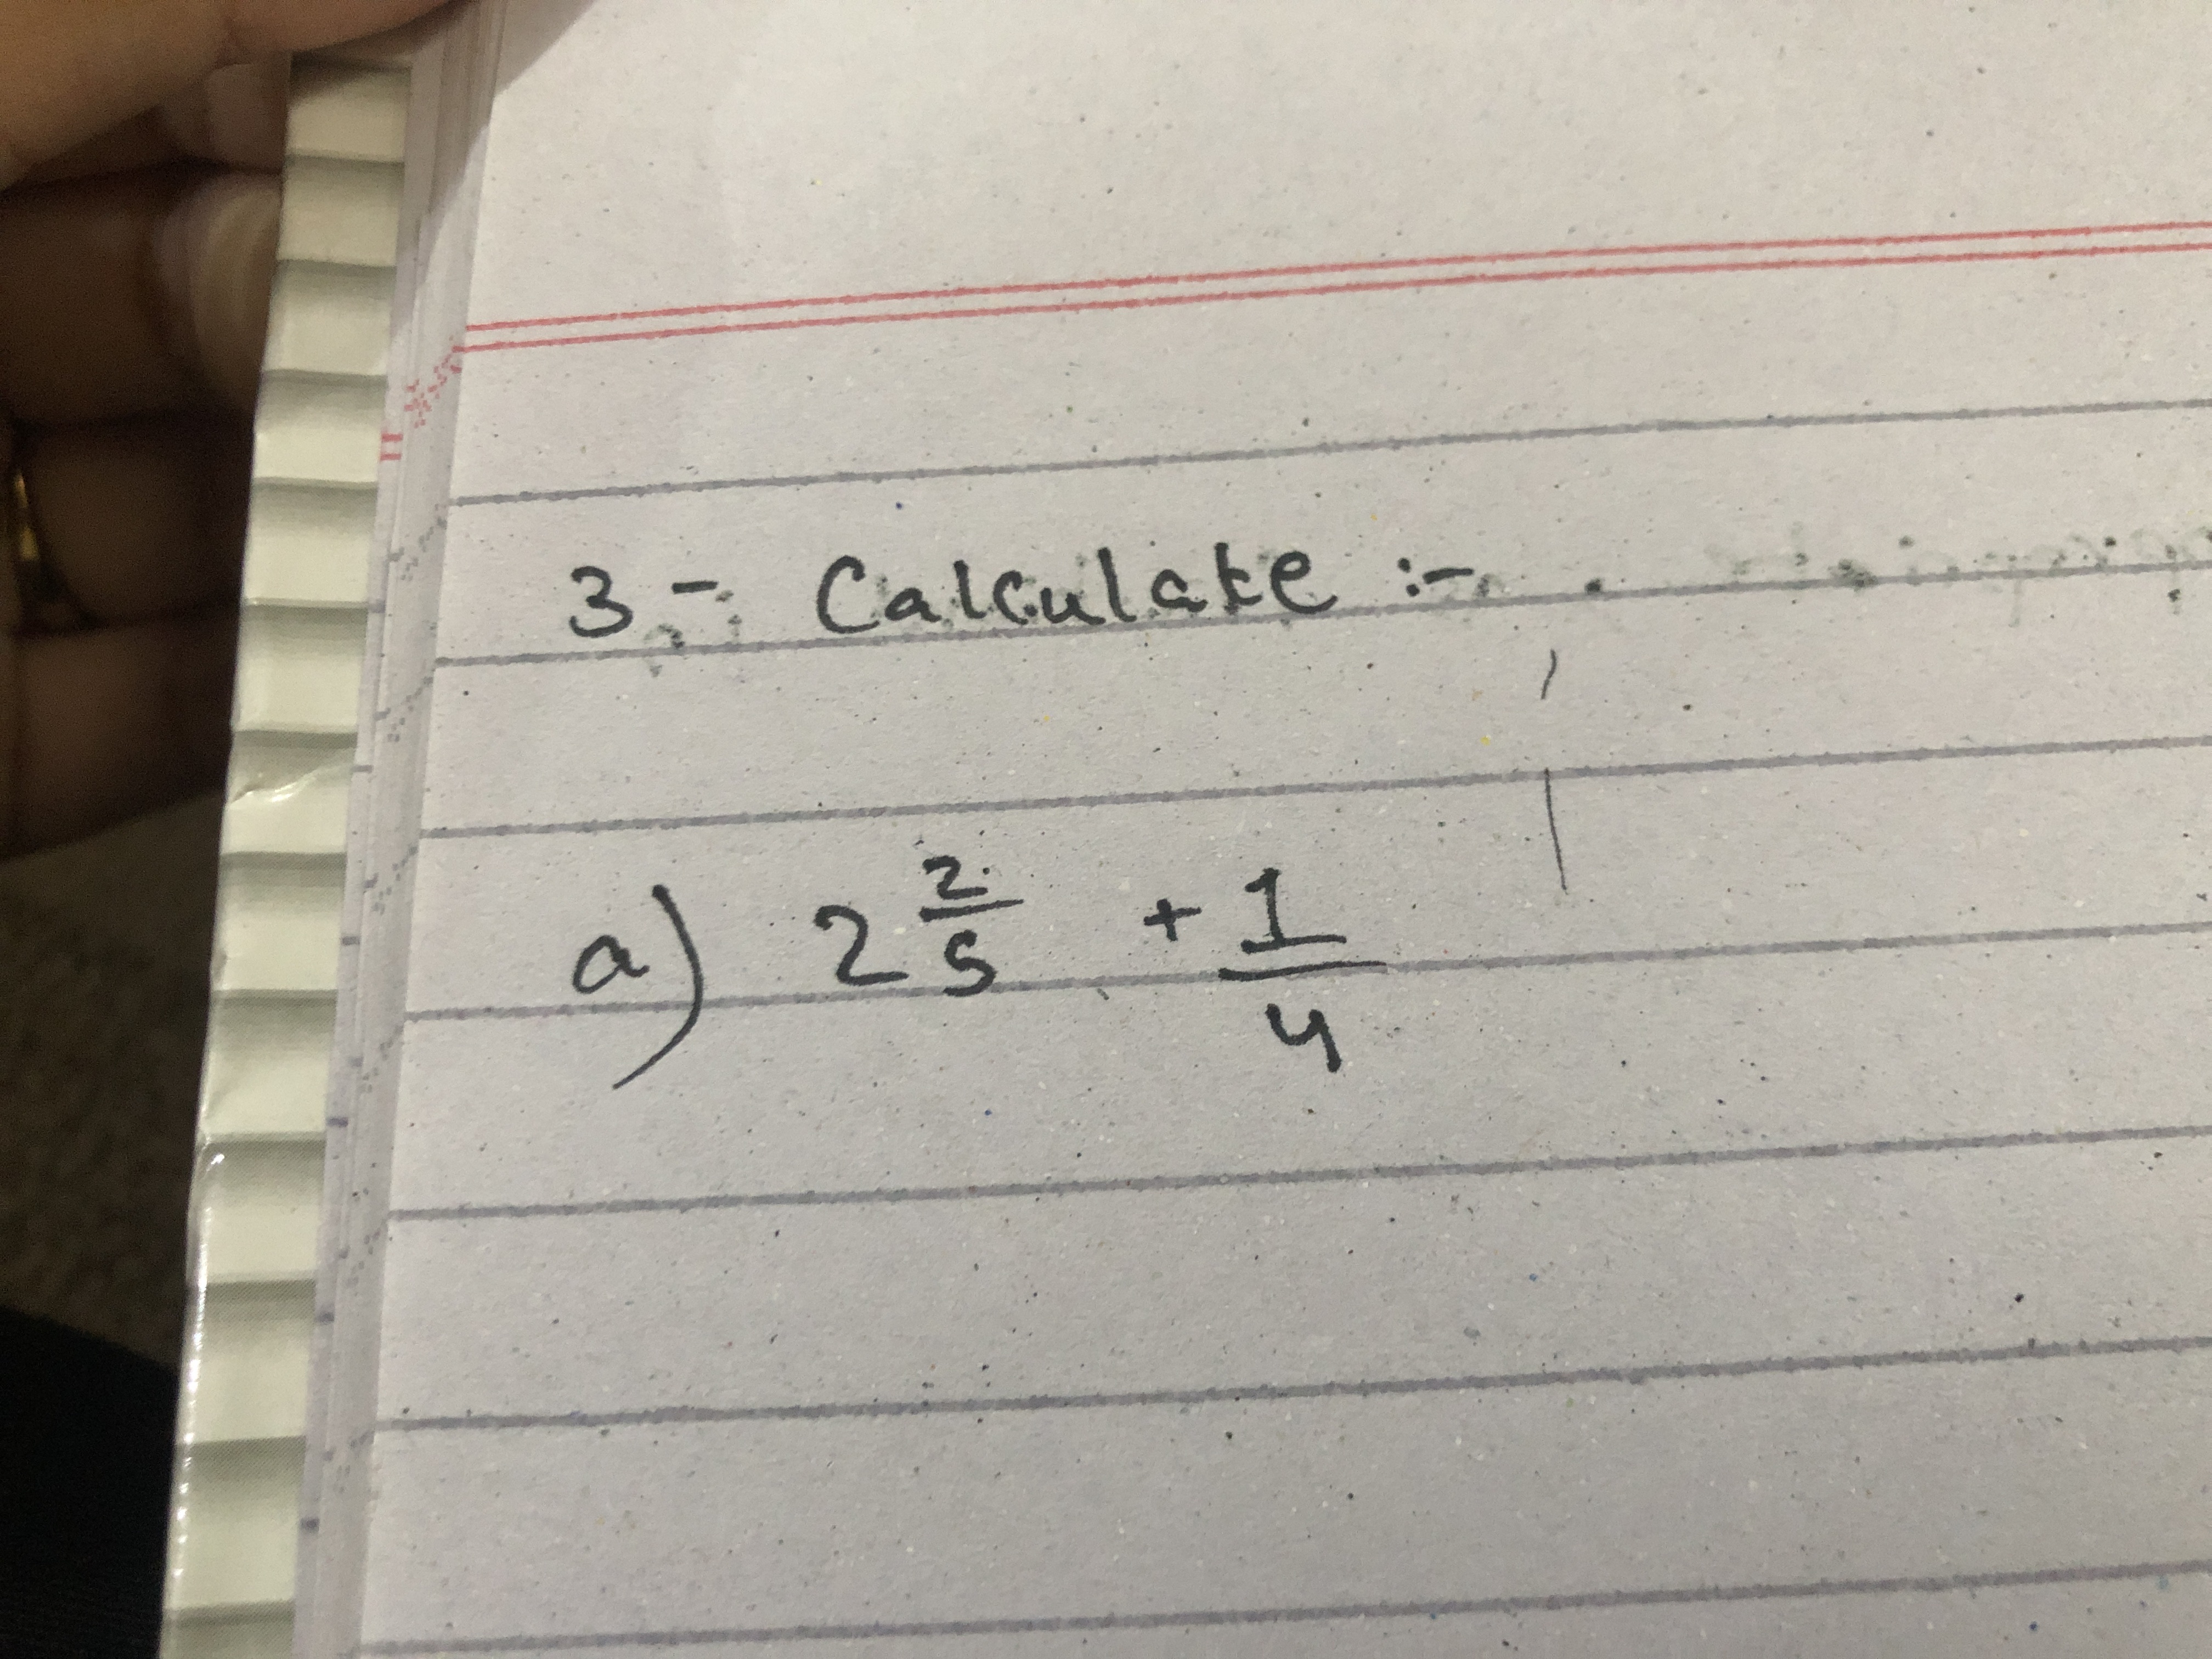 3- Calculate :-
a) 2 2/5 + 1/4